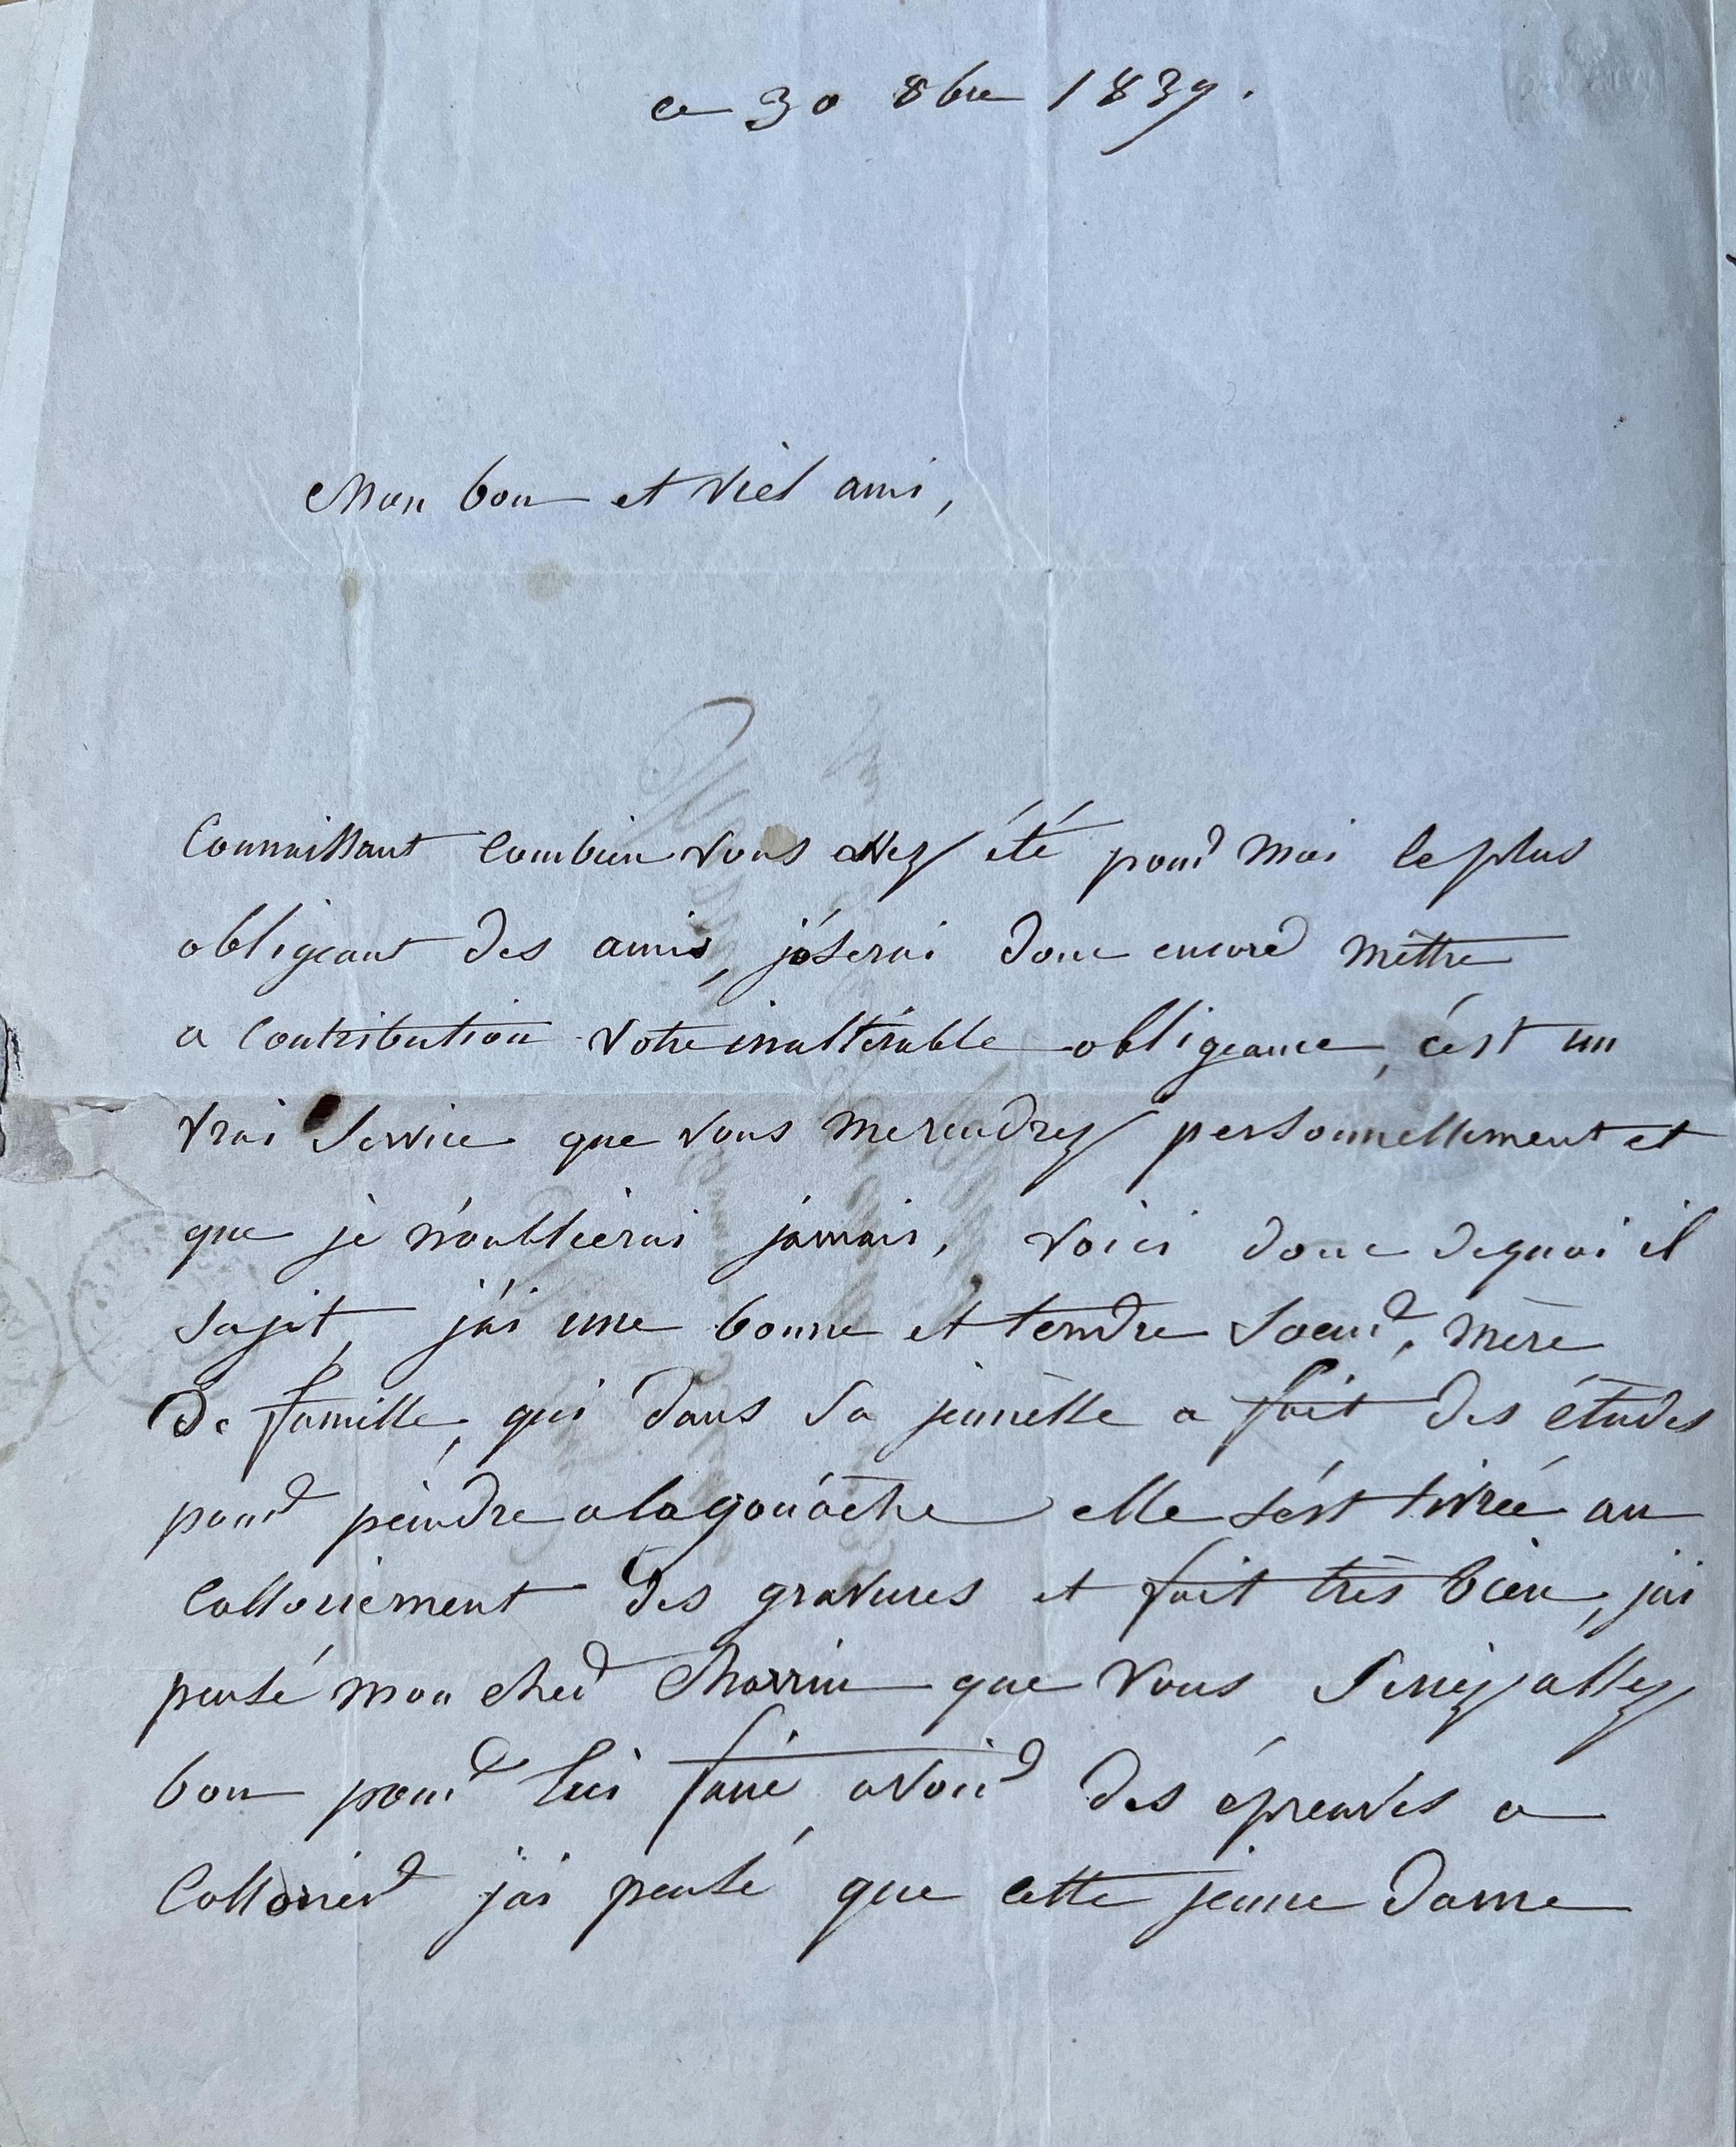 ce 30 8bre 1839.
Mon bon et viel ami,
Connaissant combien vous avez été pour moi le plus
obligeant des amis, j'óserai donc encore mêttre
a contribution votre inaltérable obligeance, c'ést un
vrai service que vous me rendrez personnellement et
que je n'oublierai jamais, voici donc de quoi il
sajit, j'ai une bonne et tendre soeur, mère
de famille, qui dans sa jeunèsse a fait des études
pour peindre a la gouache elle s'ést livrée au
colloriement des gravures et fait très bien, j'ai
pensé mon cher Charrin que vous seriez assez
bon pour lui faire avoir des épreuves a
collorier j'ai pensé que cette jeune dame